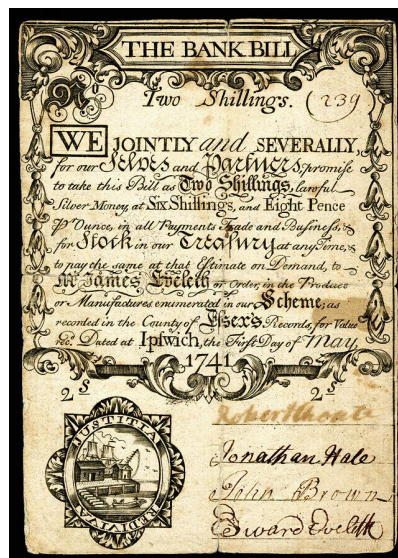 THE BANK BILL
No
Two Shillings. (239)
WE JOINTLY and SEVERALLY,
for our Selves and Partners, promise
to take this Bill as Two Shillings, lawful
Silver Money, at Six Shillings, and Eight Pence
Pr Ounce, in all Payments Trade and Business, &
for Stock in our Treasury at any Time, &
to pay the same at that Estimate on Demand, to
Mr James Eveleth or Order, in the Produce
or Manufactures enumerated in our Scheme; as
recorded in the County of Essex's Records, for Value
rec: Dated at Ipswich, the First Day of May,
1741
2s 2s
Robert Choate
JUSTITIA
REDIVIVA
Jonathan Hale
John Brown
Edward Eveleth